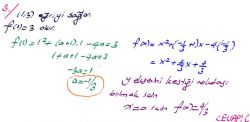 3/ (1,3) eğriyi sağlar.
f(1)=3 olur.
f(1)=1²+(a+1).1-4a=3
1+a+1-4a=3
-3a=1
a=-1/3
f(x)=x²+(-1/3+1)x-4(-1/3)
=x²+2/3x+4/3
y eksenini kestiği noktayı
bulmak için
x=0 için f(0)=4/3
CEVAP:C